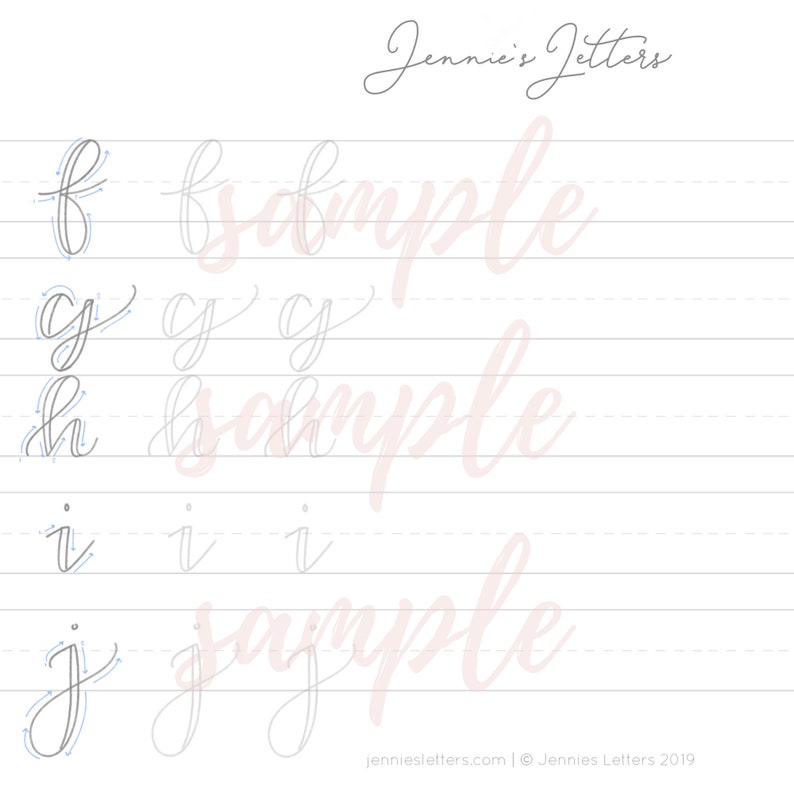 Jennie's Letters
f f f
sample
g g g
h h h
sample
i i i
j j j
sample
jenniesletters.com | © Jennies Letters 2019